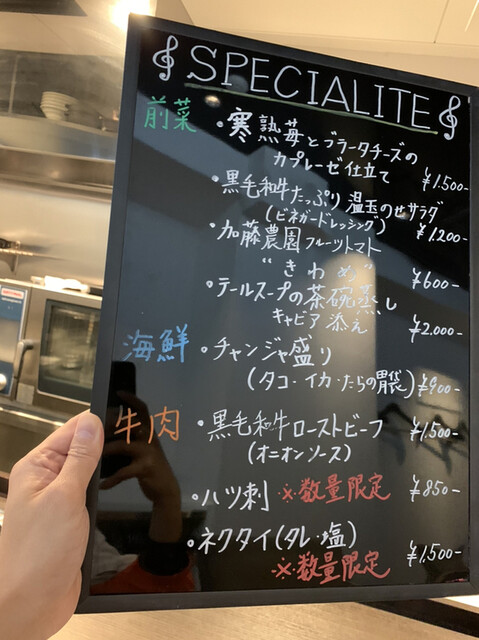 SPECIALITE
前菜
・寒熟苺とブラータチーズの
カプレーゼ仕立て ¥1.500-
・黒毛和牛たっぷり温玉のせサラダ
(ビネガードレッシング) ¥1.200-
・加藤農園フルーツトマト
"きわめ" ¥600-
・テールスープの茶碗蒸し
キャビア添え ¥2.000-
海鮮
・チャンジャ盛り
(タコ・イカ・たらの胃袋) ¥900-
牛肉
・黒毛和牛ローストビーフ ¥1,500-
(オニオンソース)
・ハツ刺 ※数量限定 ¥850-
・ネクタイ(タレ・塩)
※数量限定 ¥1,500-